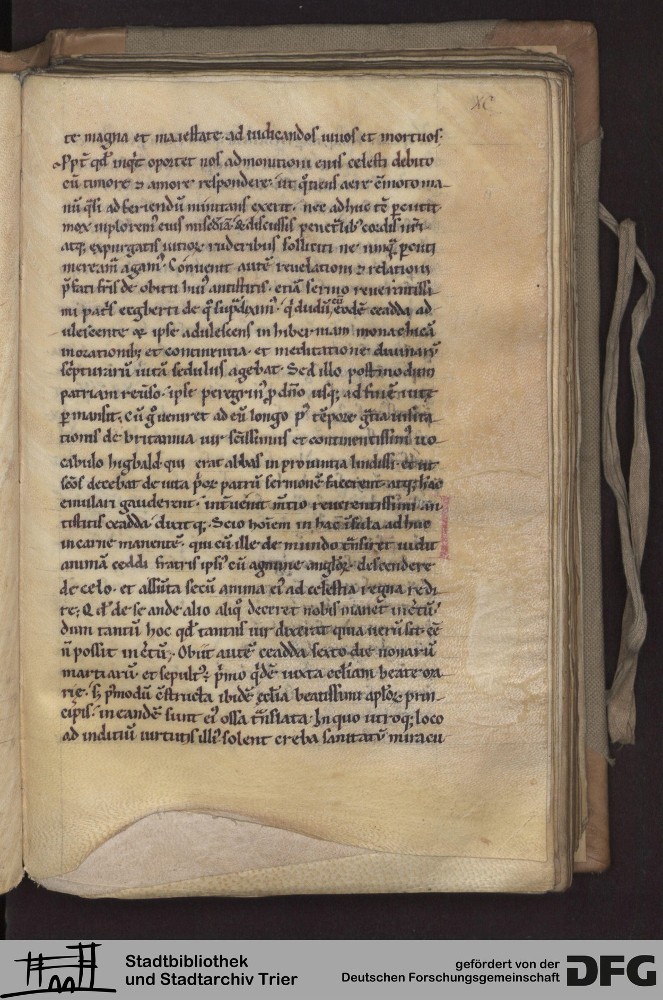 XC
te magna et maiestate ad iudicandos uiuos et mortuos.
Ppt̄ qđ inqͥt oportet nos admonitioni eius celesti debito
cū timore & amore respondere. ut qͦtiens aere c̄moto ma
nū qͣsi ad feriendū minitans exerit. nec adhuc tē pcutit.
mox implorem eius miscdiā. & discussis penet̄lib; cordis nr̄i
atq; expurgatis uitiorꝝ ruderibus solliciti ne umqͣ pcuti
meream̄ agam̄. Conuenit autē reuelationi & relationi
p̄fati fr̄is de obitu huiꝰ antistitis. etiā sermo reuerentissi
mi patͥs ecgberti de qͦ supͣ diximꝰ. qͥ dudū cū eodē ceadda ad
ulescente & ipse adulescens in hibernam monachicā
in orationib; et continentia. et meditatione diuinarū
scͥpturarū uitā sedulus agebat. Sed illo postmodum
patriam reuso. ipse peregrinꝰ p dn̄o usq; ad finē uitę
pmansit. Cū gͦ ueniret ad eū longo pꝰ tēpore gr̄a uisita
tionis de britannia uir scīssimus et continentissimꝰ uo
cabulo higbald. qui erat abbas in prouintia lindissi. et ut
scōs decebat de uita pͥorꝝ patrū sermonē facerent. atq; hāc
emulari gauderent. int̄uenit m̄tio reuerentissimi an
tistitis ceadda. dixit q;. Scio hoīem in hac īsula adhuc
in carne manentē. qui cū ille de mundo tͣnsiret uidit
animā ceddi fratris ipsiꝰ cū agmine anglorꝝ descendere
de celo. et assūta secū anima eiꝰ ad celestia regna redi
re; Qđ de se an de alio aliqͦ diceret nobis manet incͤtū.
dum tantū hoc qđ tantus uir dixerat quia uerū sit. eē
n̄ possit incͤtū. Obiit autē ceadda sexto die nonarū
martiarū et sepultꝰ ē pͥmo qͥdē iuxta ecciam beate ma
rie. s; pͦmodū c̄structa ibidē ecclia beatissimi aplorꝝ prin
cipis. in eandē sunt eiꝰ ossa tͣnslata. In quo utroq; loco
ad inditiū uirtutis illiꝰ solent crebra sanitatū miracu
Stadtbibliothek
und Stadtarchiv Trier
gefördert von der
Deutschen Forschungsgemeinschaft
DFG